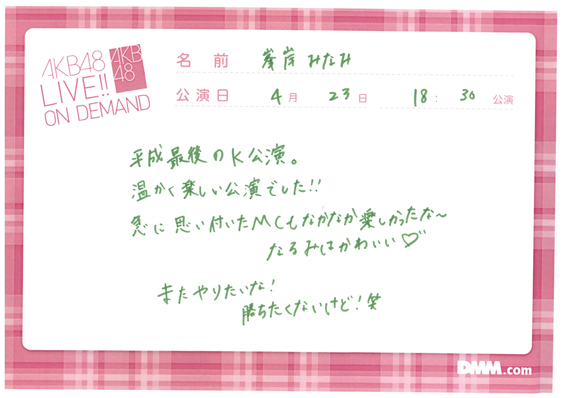 AKB48
LIVE!!
ON DEMAND
AKB
48
名前 峯岸みなみ
公演日 4月 23日 18:30公演
平成最後のK公演。
温かく楽しい公演でした!!
急に思い付いたMCもなかなか楽しかったな〜
なるみはかわいい♡
またやりたいな!
勝ちたくないけど!笑
DMM.com